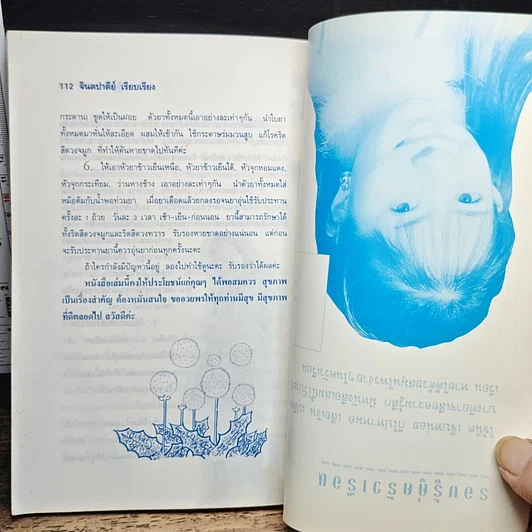 112 จินตปาตีย์ เรียบเรียง
กระดาน) ขูดให้เป็นฝอย ตัวยาทั้งหมดนี้เอาอย่างละเท่าๆกัน นำใบยา
ทั้งหมดมาหั่นให้ละเอียด ผสมให้เข้ากัน ใช้กระดาษร่มมวนสูบ แก้โรคริด
สีดวงจมูก ที่ทำให้คันหายขาดไปทันทีค่ะ
6. ให้เอาหัวยาข้าวเย็นเหนือ, หัวยาข้าวเย็นใต้, หัวจุกหอมแดง,
หัวจุกกระเทียม, ว่านหางช้าง เอาอย่างละเท่าๆกัน นำตัวยาทั้งหมดใส่
หม้อต้มกับน้ำพอท่วมยา เมื่อยาเดือดแล้วยกลงรอจนยาอุ่นใช้รับประทาน
ครั้งละ 1 ถ้วย วันละ 3 เวลา เช้า-เย็น-ก่อนนอน ยานี้สามารถรักษาได้
ทั้งริดสีดวงจมูกและริดสีดวงทวาร รับรองหายขาดอย่างแน่นอน แต่ก่อน
จะรับประทานยานี้ควรอุ่นยาก่อนทุกครั้งนะคะ
ถ้าใครกำลังมีปัญหานี้อยู่ ลองไปทำใช้ดูนะคะ รับรองว่าได้ผลค่ะ
หนังสือเล่มนี้คงให้ประโยชน์แก่คุณๆ ได้พอสมควร สุขภาพ
เป็นเรื่องสำคัญ ต้องหมั่นสนใจ ขออวยพรให้ทุกท่านมีสุข มีสุขภาพ
ที่ดีตลอดไป สวัสดีค่ะ
รอบรู้คู่ครัวเรือน